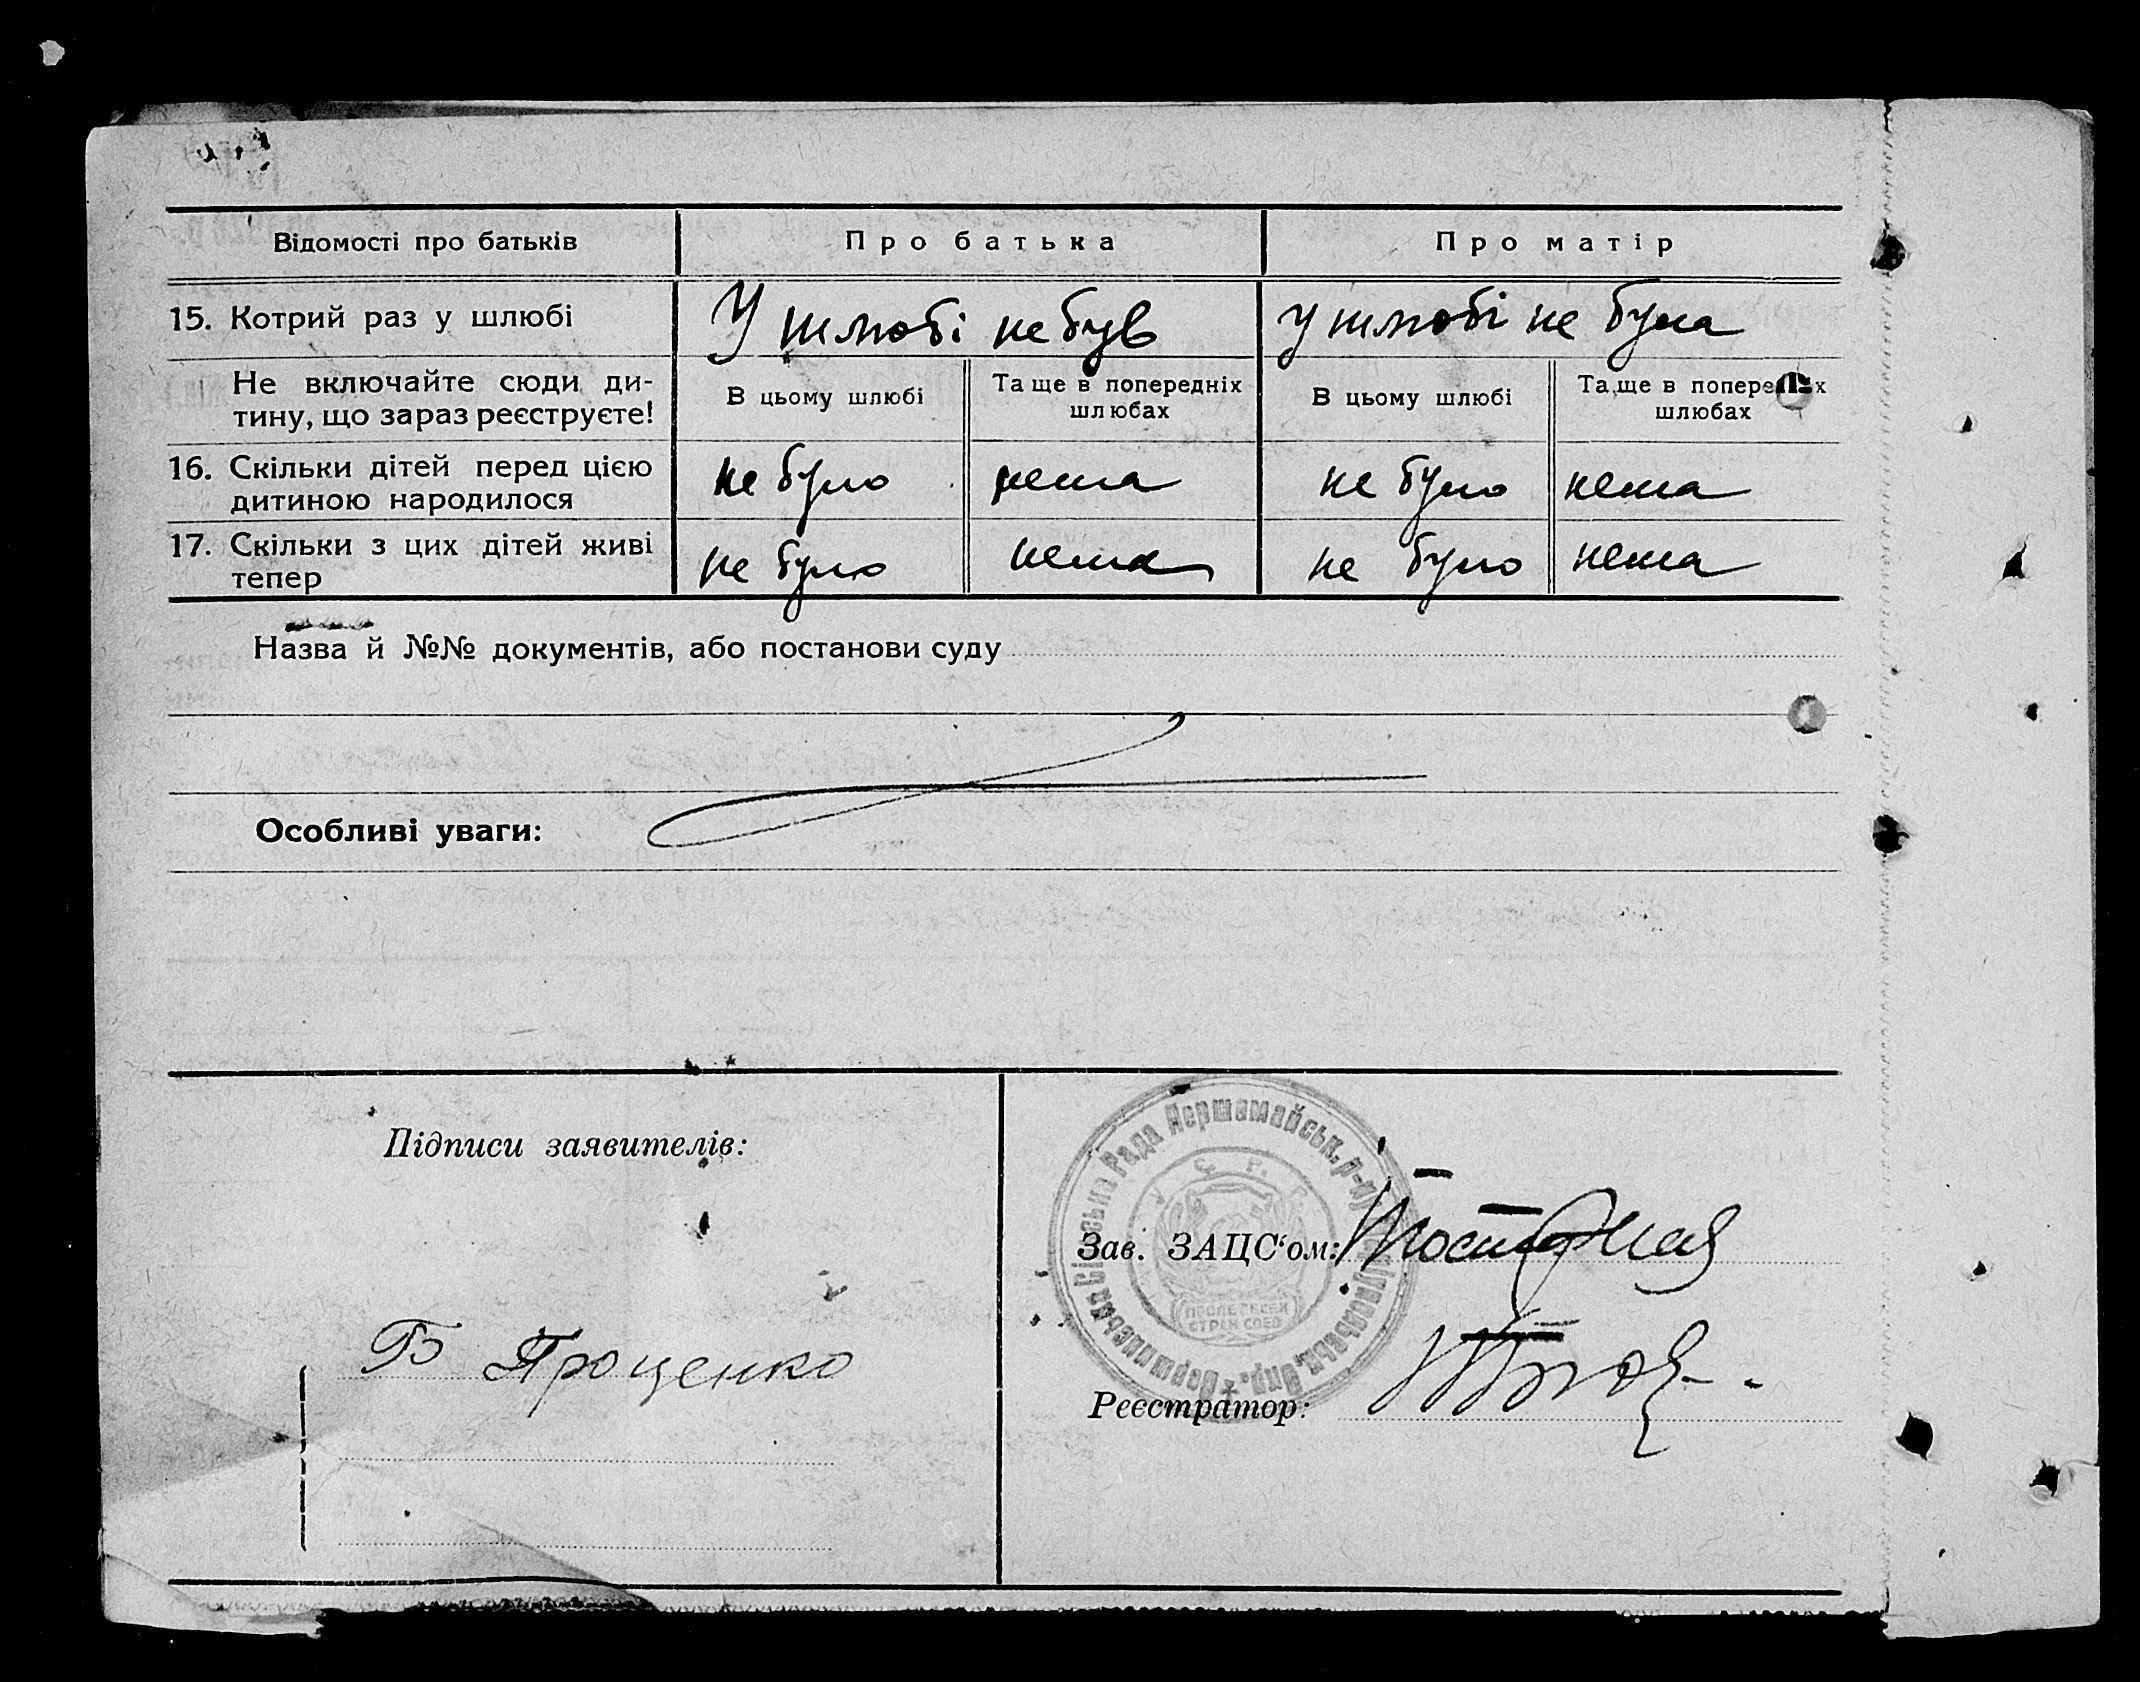 Відомості про батьків
Про батька
Про матір
15. Котрий раз у шлюбі
У шлюбі не був
у шлюбі не була
Не включайте сюди ди-
тину, що зараз реєструєте!
В цьому шлюбі
Та ще в попередніх
шлюбах
В цьому шлюбі
Та ще в попередніх
шлюбах
16. Скільки дітей перед цією
дитиною народилося
не було
нема
не було
нема
17. Скільки з цих дітей живі
тепер
не було
нема
не було
нема
Назва й №№ документів, або постанови суду
Особливі уваги:
Підписи заявителів:
Проценко
Сільська Рада Першамайськ. р-ну
У. С. Р. Р.
ПРОЛЕ
СТРАН СОЕД
Зав. ЗАЦС‘ом:
Реєстратор: